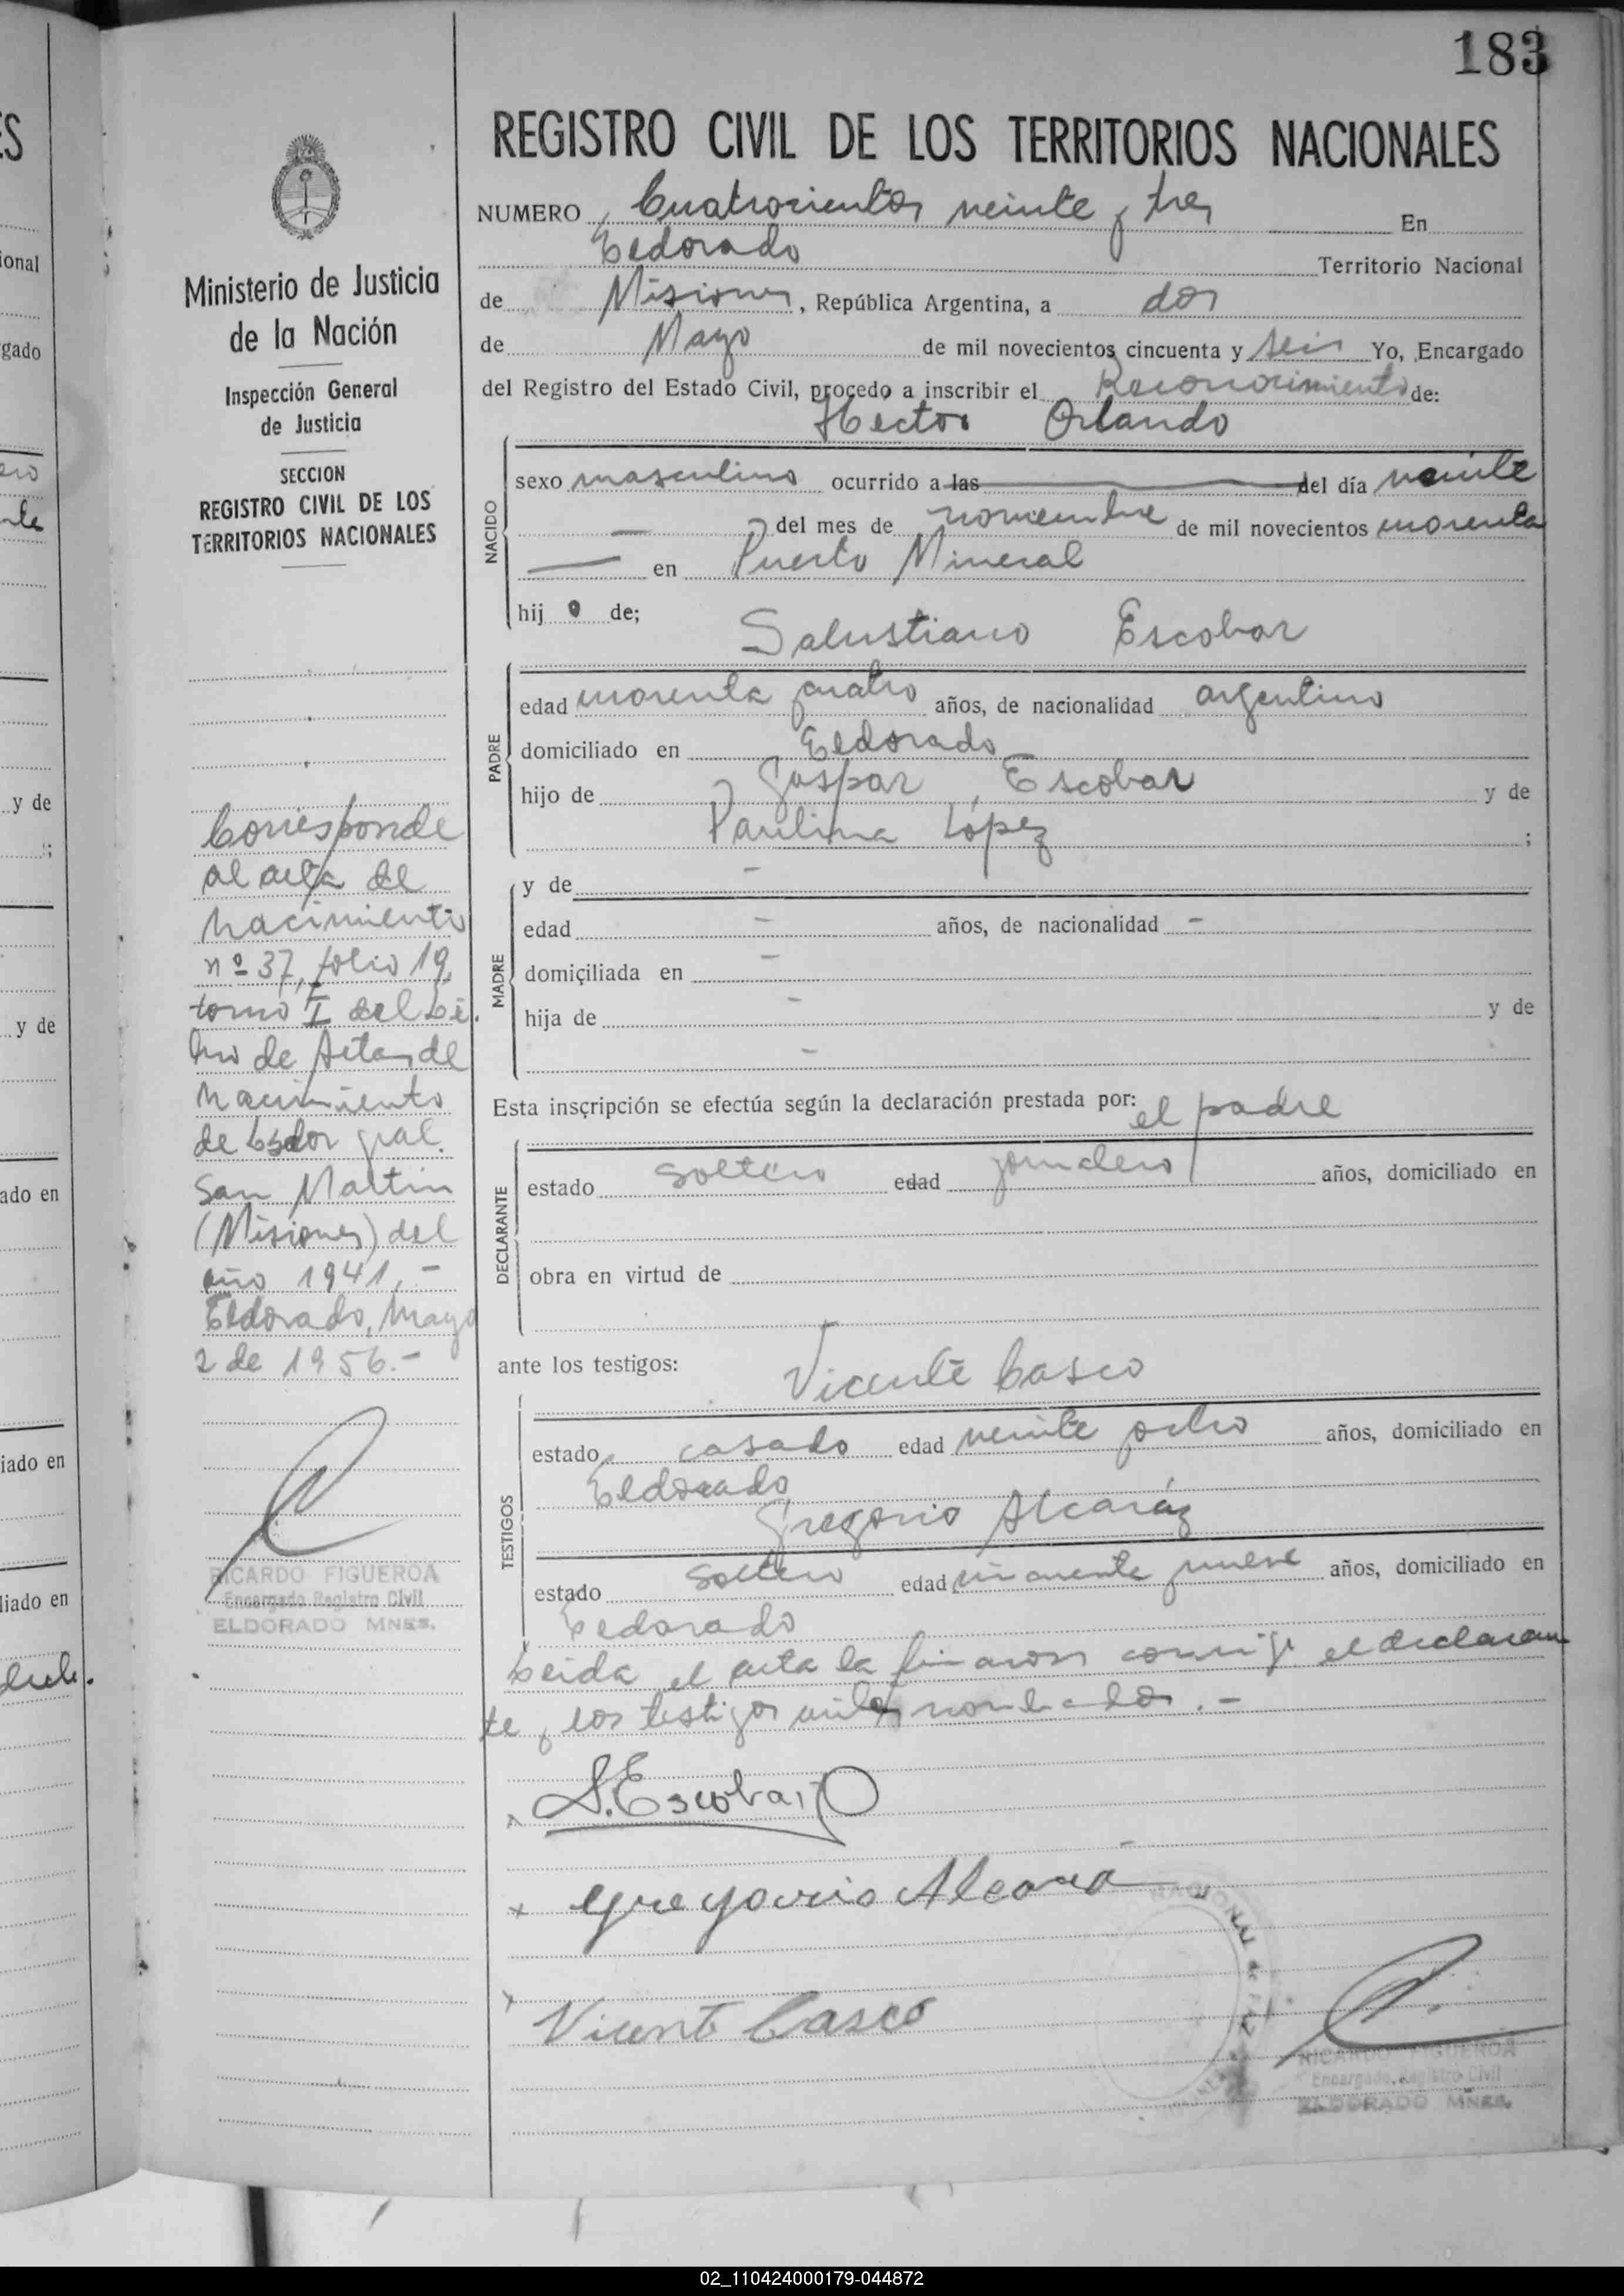 183
REGISTRO CIVIL DE LOS TERRITORIOS NACIONALES
NUMERO Cuatrocientos veinte y tres En
Eldorado Territorio Nacional
de Misiones, República Argentina, a dos
de Mayo de mil novecientos cincuenta y seis Yo, Encargado
del Registro del Estado Civil, procedo a inscribir el Reconocimiento de:
Hector Orlando
NACIDO
sexo masculino ocurrido a las del día veinte
— del mes de noviembre de mil novecientos cuarenta
— en Puerto Mineral
hijo de;
Salustiano Escobar
PADRE
edad cuarenta y cuatro años, de nacionalidad argentino
domiciliado en Eldorado
hijo de Gaspar Escobar y de
Paulina López ;
MADRE
y de -
edad - años, de nacionalidad -
domiciliada en -
hija de - y de
-
Esta inscripción se efectúa según la declaración prestada por:
el padre
DECLARANTE
estado soltero edad jornalero años, domiciliado en
obra en virtud de
ante los testigos:
Vicente Casco
TESTIGOS
estado casado edad veinte y ocho años, domiciliado en
Eldorado
Gregorio Alcaráz
estado soltero edad cincuenta y nueve años, domiciliado en
Eldorado
Leida el acta la firmaron conmigo el declaran
te y los testigos antes nombrados.-
x S. Escobar
x Gregorio Alcara
x Vicente Casco
RICARDO FIGUEROA
Encargado Registro Civil
ELDORADO MNES.
Ministerio de Justicia
de la Nación
Inspección General
de Justicia
SECCION
REGISTRO CIVIL DE LOS
TERRITORIOS NACIONALES
Corresponde
al acta de
nacimiento
nº 37, folio 19,
tomo I del Li-
bro de Actas de
nacimiento
de Lsdor gral.
San Martin
(Misiones) del
año 1941.-
Eldorado, Mayo
2 de 1956.-
RICARDO FIGUEROA
Encargado Registro Civil
ELDORADO MNES.
ES
ional
gado
y de
;
y de
ado en
iado en
liado en
02_110424000179-044872